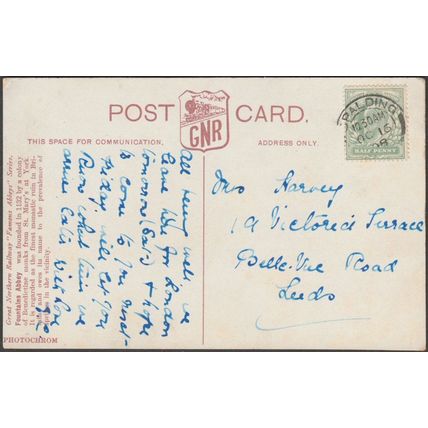 POST CARD.
GNR
THIS SPACE FOR COMMUNICATION.
ADDRESS ONLY.
SPALDING
12.30AM
OC 16
09
HALF PENNY
Great Northern Railway "Famous Abbeys" Series.
Fountains Abbey was founded in 1132 by a colony
of Benedictine monks from St. Mary's at York.
It is regarded as the finest monastic ruin in Bri-
tain and owes its name to the prevalence of
springs in the vicinity.
PHOTOCHROM
All being well we
leave here for London
tomorrow (Sat.) & hope
to come to you next
Friday will let you
know what time we
arrive later With love
Mrs Harvey
1A Victoria Terrace
Belle-Vue Road
Leeds